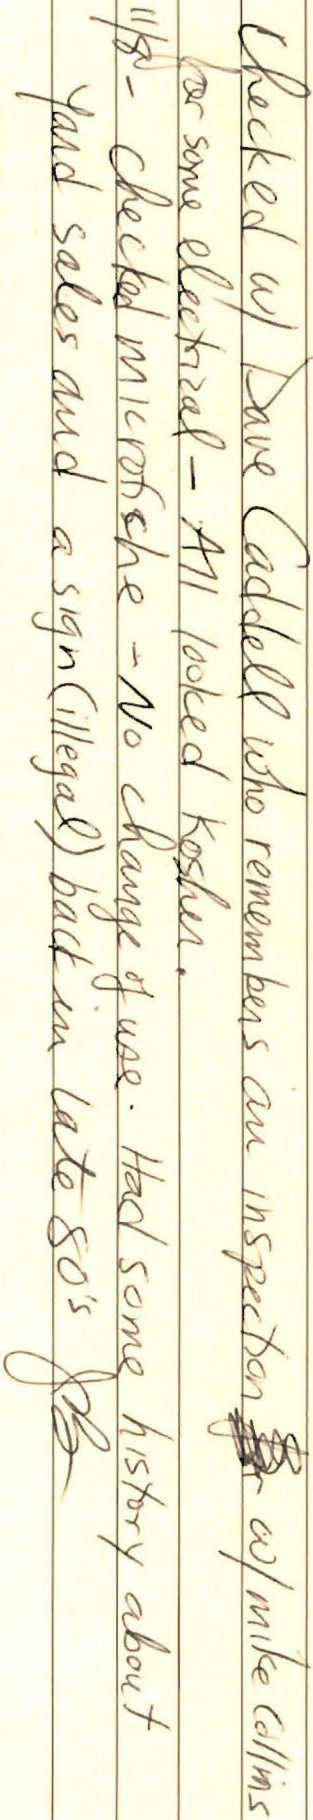 Checked w/ Dave Caddell who remembers an inspection w/ mike Collins
for some electrical - All looked Kosher.
11/8 - Checked microfiche - No change of use. Had some history about
yard sales and a sign (illegal) back in late 80's